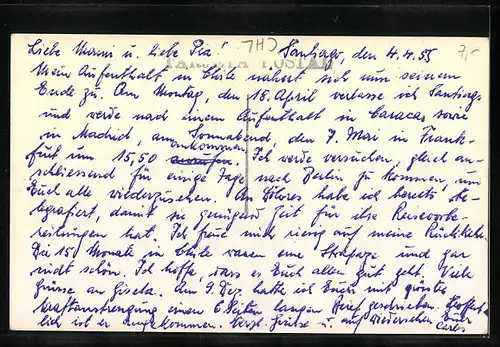 Liebe Mutti u. liebe Pia! CHL Santiago, den 4.4.55 7,-
TARJETA POSTAL
Mein Aufenthalt in Chile nähert sich nun seinem
Ende zu. Am Montag, den 18. April verlasse ich Santiago
und werde nach einem Aufenthalt in Caracas sowie
in Madrid am Sonnabend, den 7. Mai in Frank-
furt um 15,50 ankommen. Ich werde versuchen, gleich an-
schliessend für einige Tage nach Berlin zu kommen, um
Euch alle wiederzusehen. An Dolores habe ich bereits te-
legrafiert, damit sie genügend Zeit für ihre Reisevorbe-
reitungen hat. Ich freue mich riesig auf meine Rückkehr.
Die 15 Monate in Chile waren eine Strapaze und gar
nicht schön. Ich hoffe, dass es Euch allen gut geht. Viele
Grüsse an Gisela. Am 9. Dez. hatte ich Euch mit grösster
Kraftanstrengung einen 6 Seiten langen Brief geschrieben. Hoffent-
lich ist er angekommen. Herzl. Grüsse u. auf Wiedersehen Euer
Carlos